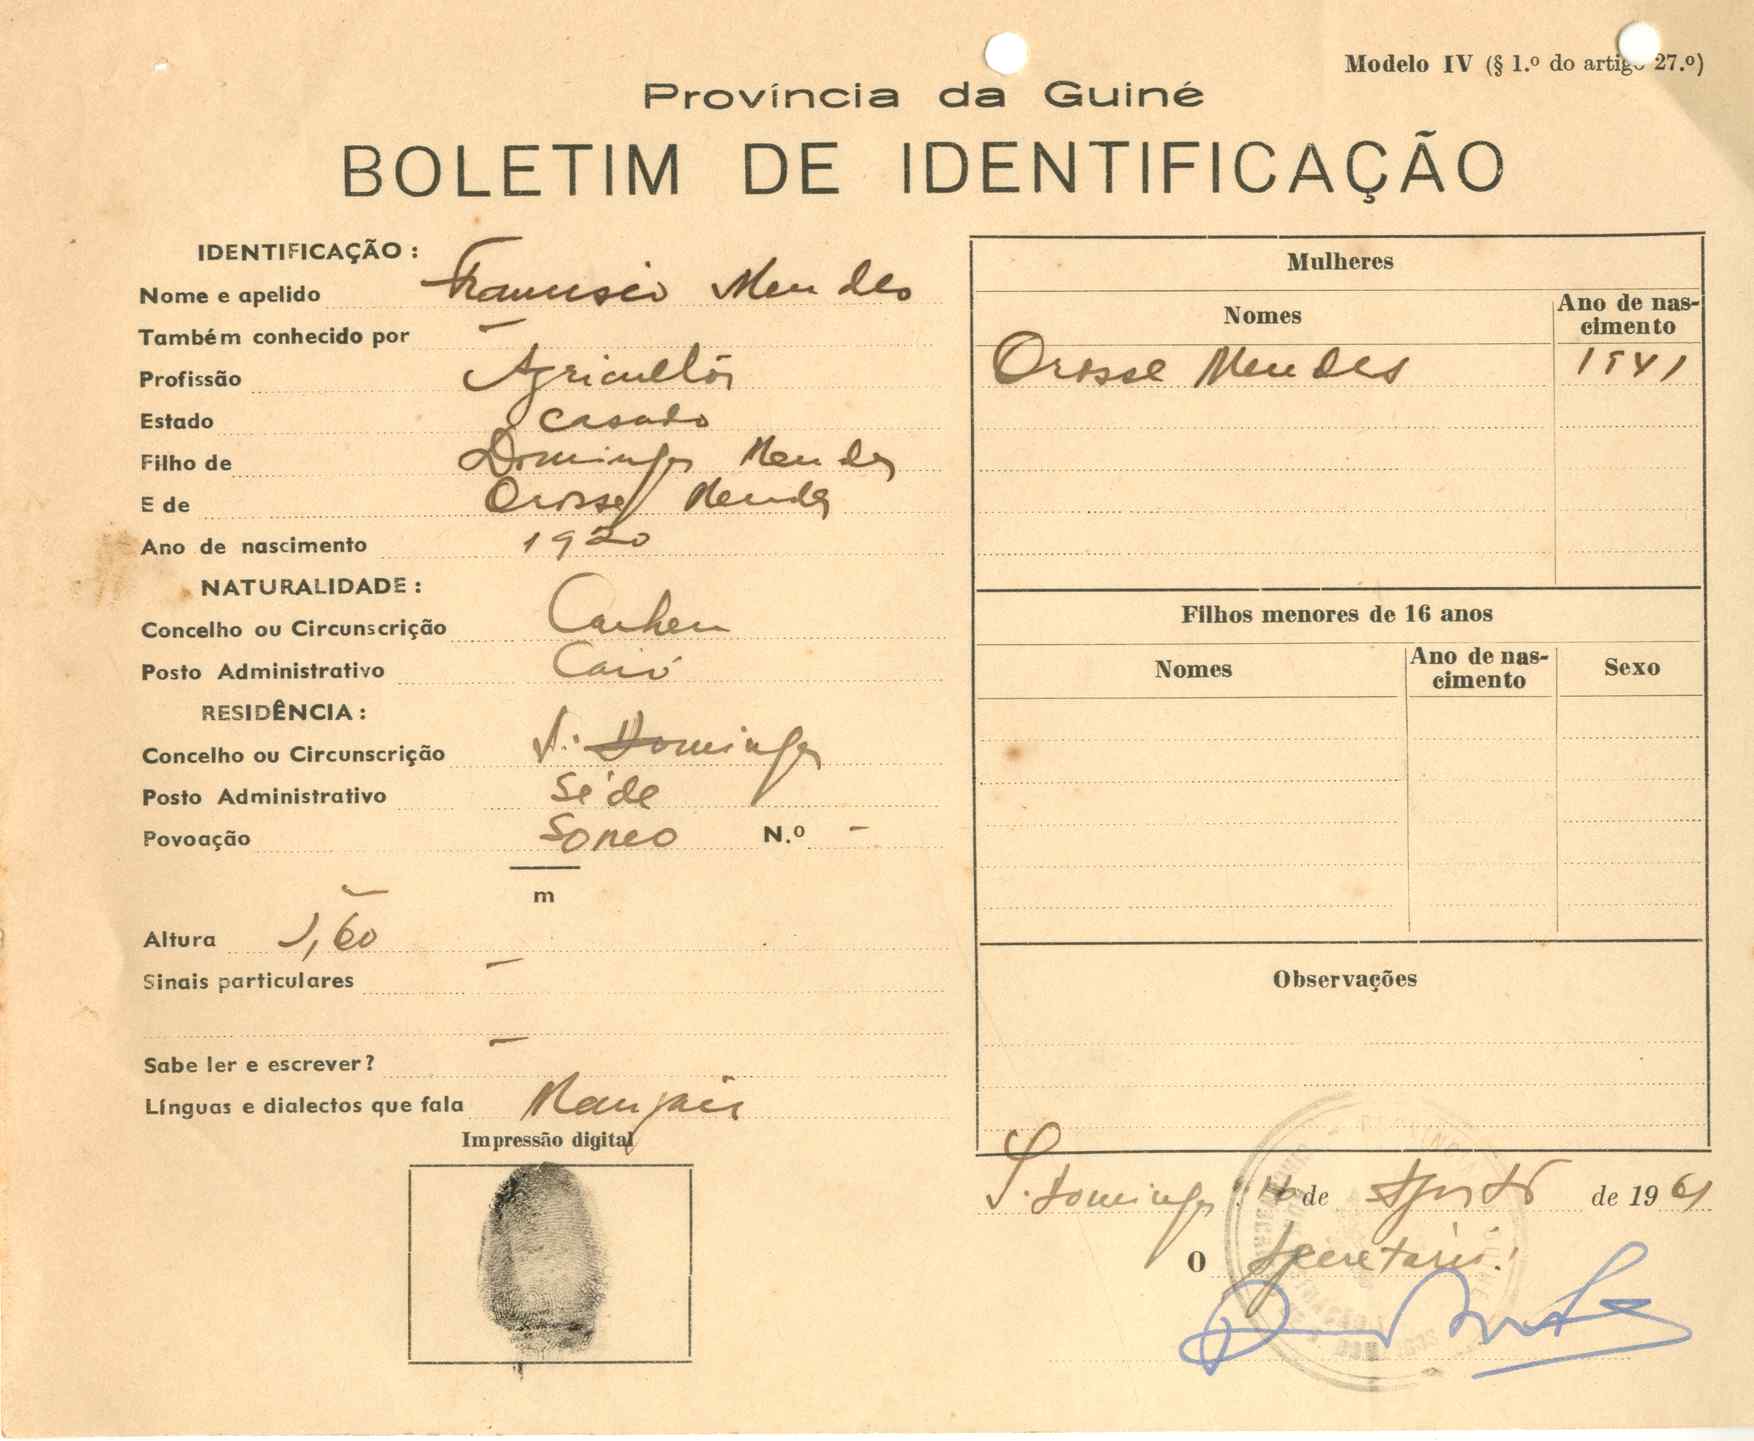 Modelo IV (§ 1.º do artigo 27.º)
Província da Guiné
BOLETIM DE IDENTIFICAÇÃO
IDENTIFICAÇÃO :
Nome e apelido Francisco Mendes
Também conhecido por –
Profissão Agricultôr
Estado Casado
Filho de Domingos Mendes
E de Orosse Mendes
Ano de nascimento 1920
NATURALIDADE :
Concelho ou Circunscrição
Posto Administrativo Caió
RESIDÊNCIA :
Concelho ou Circunscrição S. Domingos
Posto Administrativo Séde
Povoação N.º –
m
Altura 1,60
Sinais particulares –
Sabe ler e escrever? –
Línguas e dialectos que fala
Impressão digital
Mulheres
Nomes
Ano de nas-
cimento
Orosse Mendes 1941
Filhos menores de 16 anos
Nomes
Ano de nas-
cimento
Sexo
Observações
S. Domingos de Agosto de 1961
O Secretário: